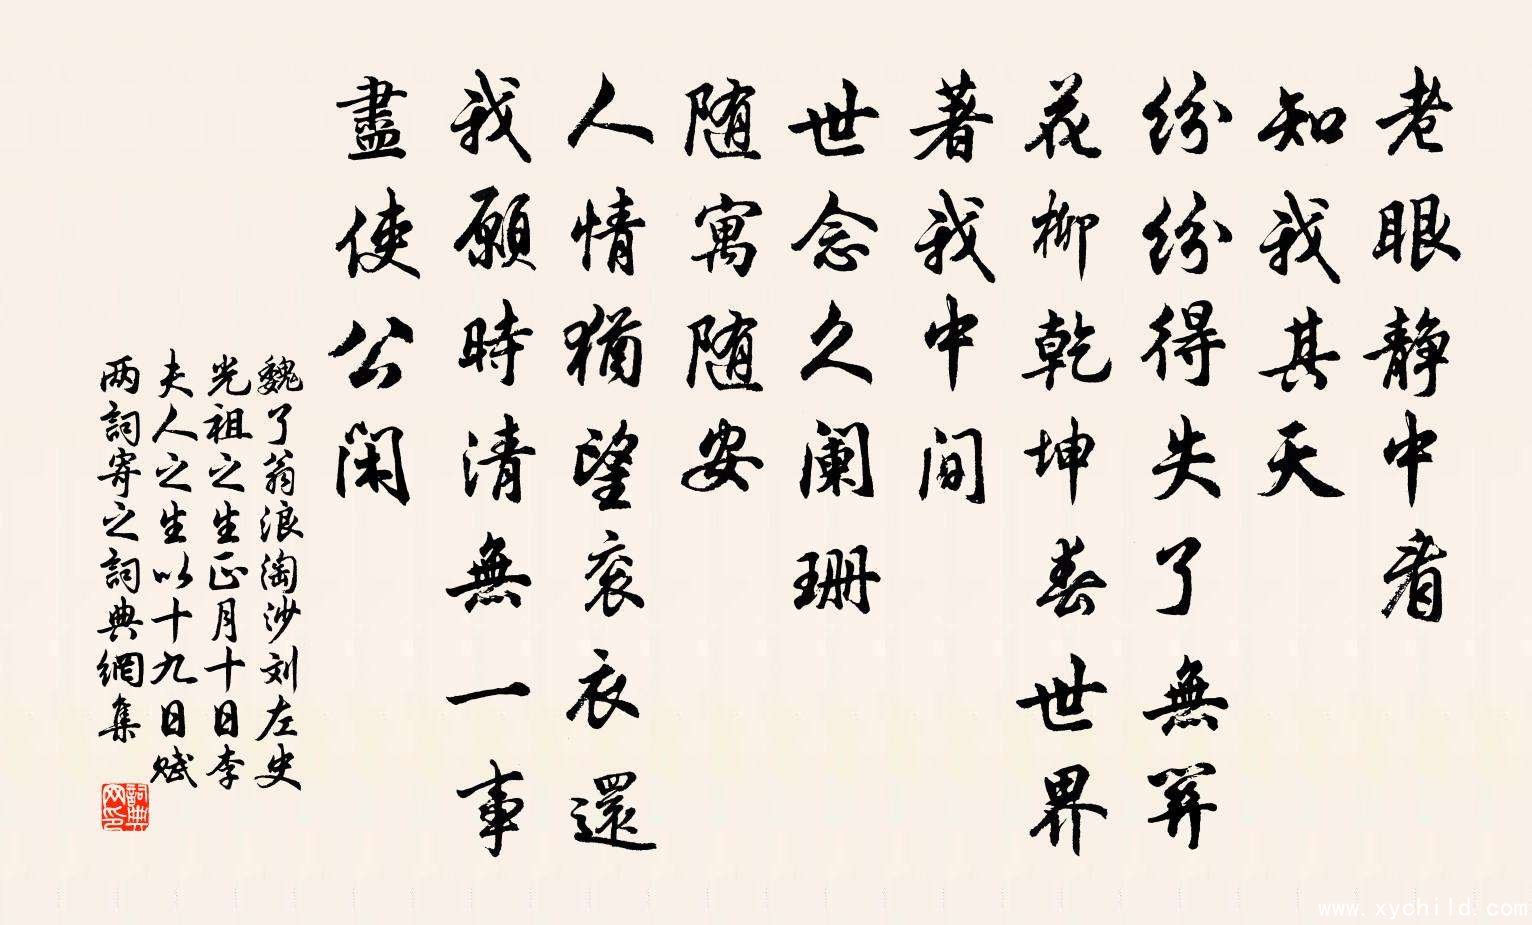 老眼静中看
知我其天
纷纷得失了無筭
花柳乾坤春世界
著我中间
世念久阑珊
随寓随安
人情猶望衮衣還
我願時清無一事
盡使公闲
魏了翁浪淘沙刘左史
光祖之生正月十日李
夫人之生以十九日赋
两詞寄之詞典網集
詞典網印
www.xychild.com